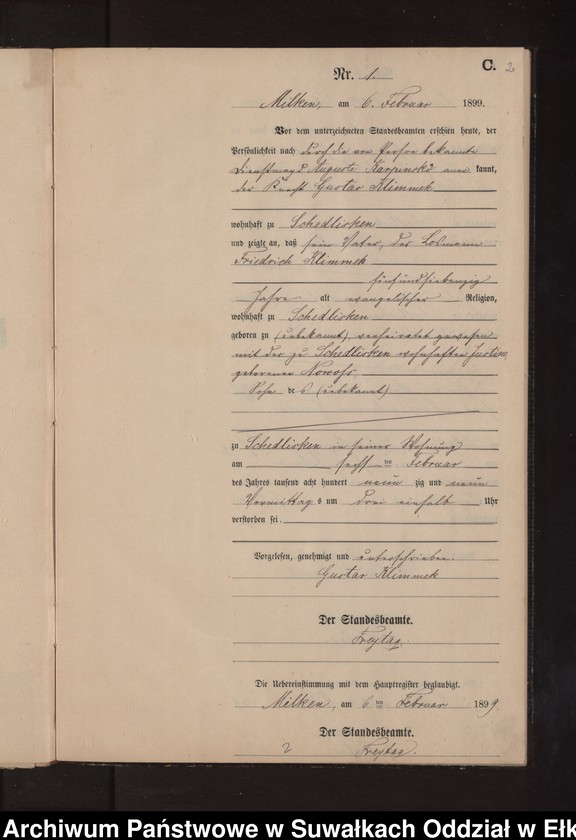 C. 2
Nr. 1.
Milken, am 6. Februar 1899.
Vor dem unterzeichneten Standesbeamten erschien heute, der
Persönlichkeit nach durch die von Person bekannte
Dienstmagd Auguste Karpinski aner kannt,
der Knecht Gustav Klimmek
wohnhaft zu Schedlisken
und zeigte an, daß sein Vater, der Losmann
Friedrich Klimmek
fünfundsiebenzig
Jahre alt evangelischer Religion,
wohnhaft zu Schedlisken
geboren zu (unbekannt), verheiratet gewesen
mit der zu Schedlisken wohnhaften Justine,
geborenen
Sohn des (unbekannt)
zu Schedlisken in seiner Wohnung
am sechsten Februar
des Jahres tausend acht hundert neun zig und neun
Vormittags um drei einhalb Uhr
verstorben sei.
Vorgelesen, genehmigt und unterschrieben.
Gustav Klimmek
Der Standesbeamte.
Freytag.
Die Uebereinstimmung mit dem Hauptregister beglaubigt.
Milken, am 6ten Februar 1899
Der Standesbeamte.
2 Freytag.
Archiwum Państwowe w Suwałkach Oddział w Ełk